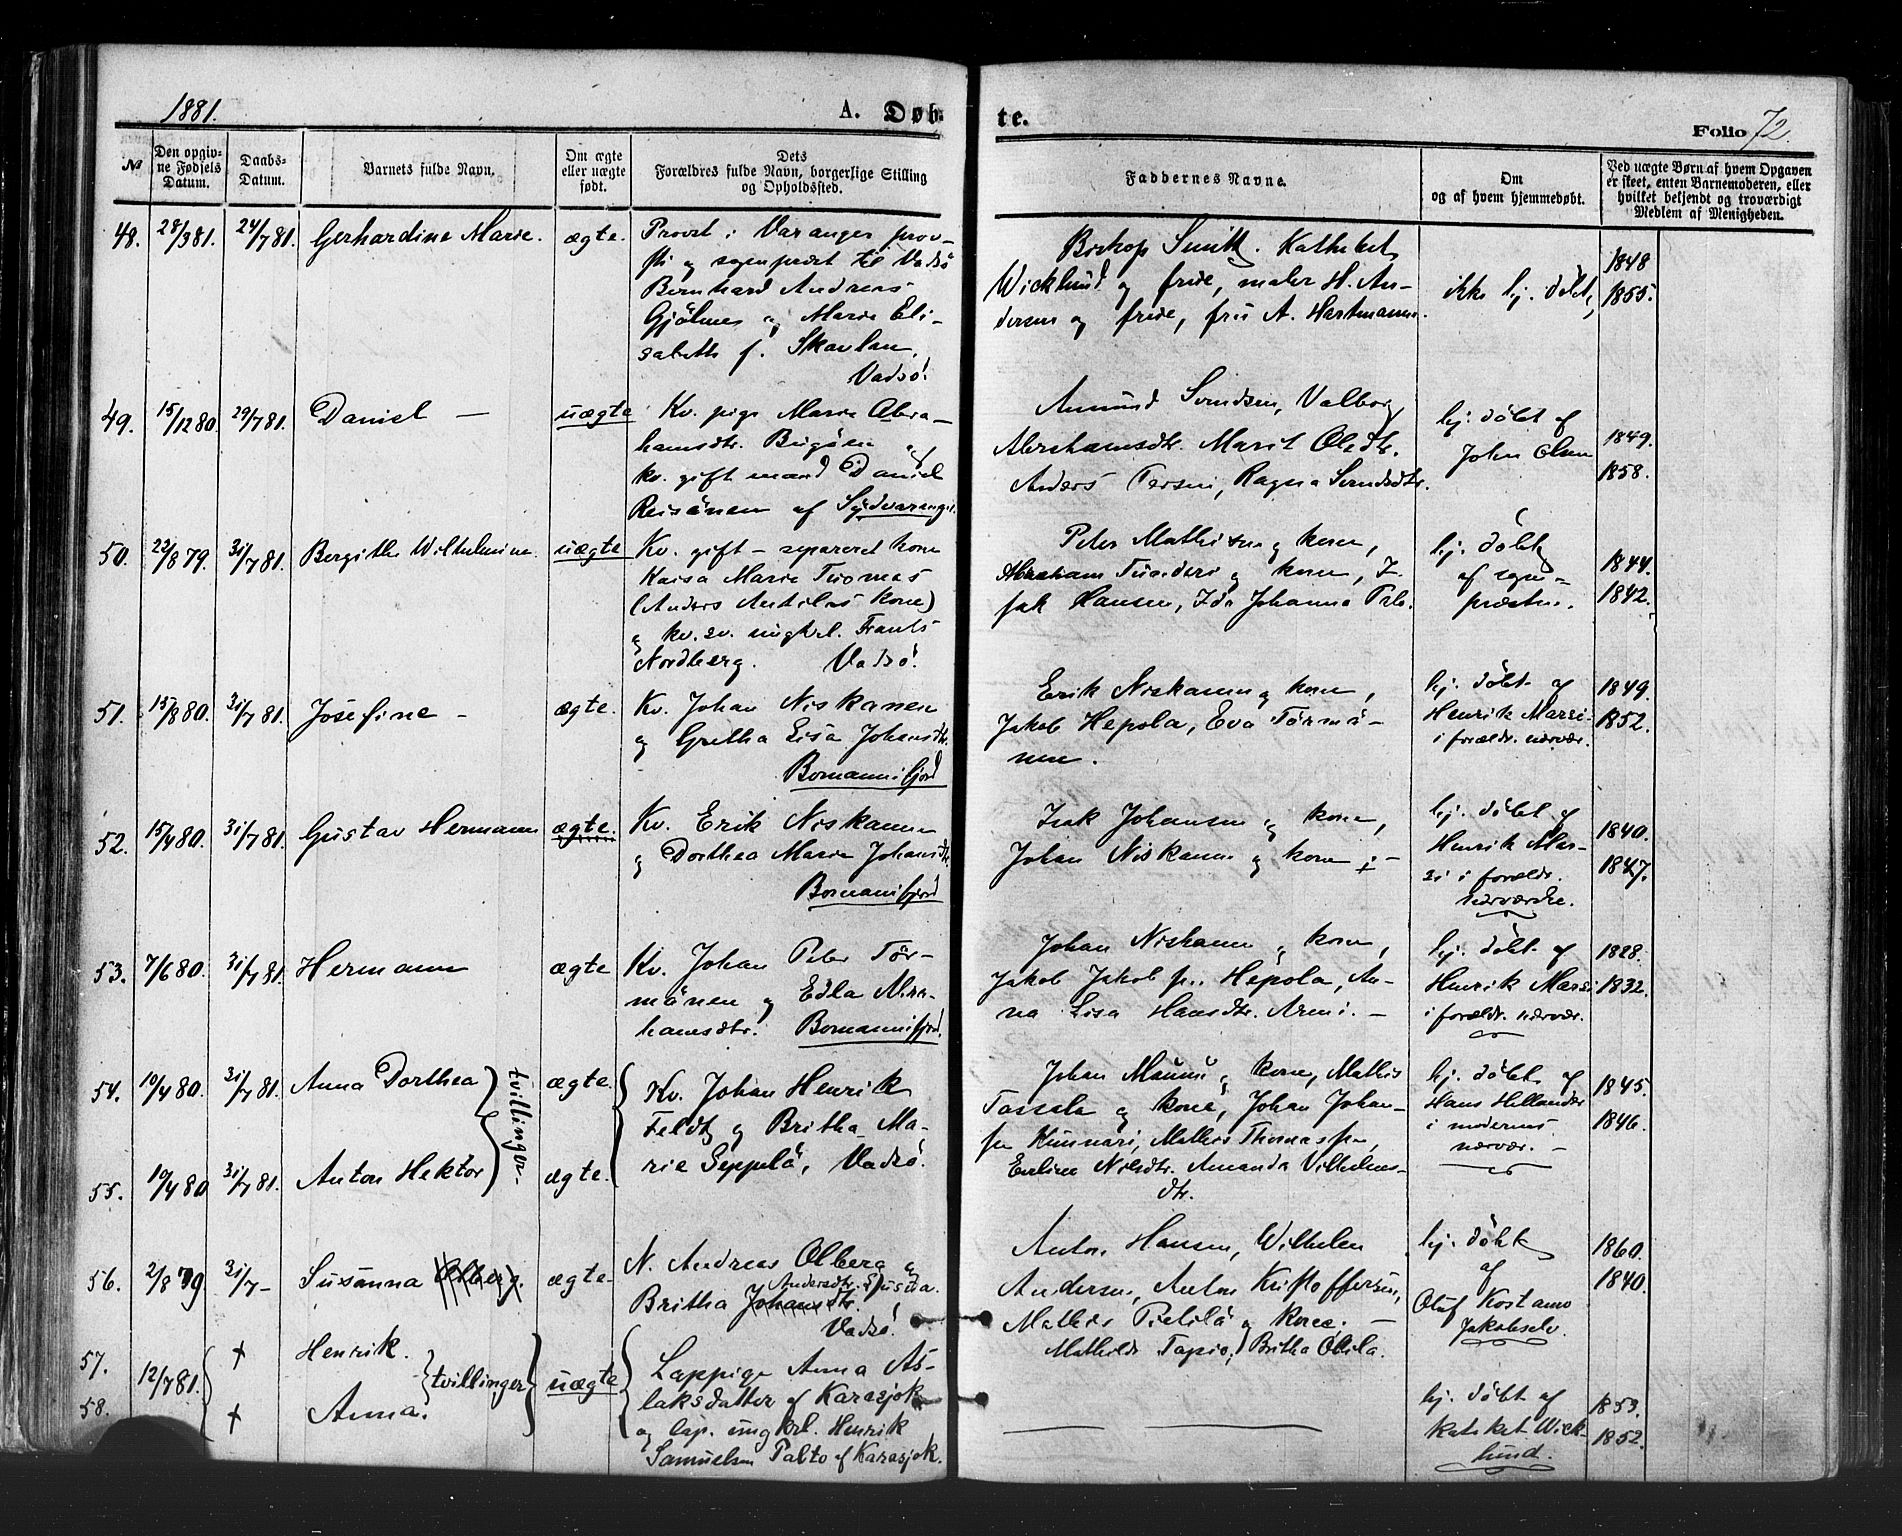 1881.
A. Døb-
te.
Folio 72.
№
Den opgiv-
ne Fødsels
Datum.
Daabs-
Datum.
Barnets fulde Navn.
Om ægte
eller uægte
født.
Dets
Forældres fulde Navn, borgerlige Stilling
og Opholdssted.
Faddernes Navne.
Om
og af hvem hjemmedøbt.
Ved uægte Børn af hvem Opgaven
er skeet, enten Barnemoderen, eller
hvilket bekjendt og troværdigt
Medlem af Menigheden.
48. 28/3 81. 24/7 81. Gerhardine Marie. ægte.
Provst i Varanger prov-
sti og sognepræst til Vadsö
Bernhard Andreas
Gjölme og Marie Eli-
sabeth f. Skavlan.
Vadsö.
Biskop Smitt. Kathekt
Wicklund og frue, maler H. An-
dersen og frue, fru A. Hartmann.
ikke hj. döbt,
1848
1855.
49. 15/12 80. 29/7 81. Daniel — uægte
Kv. pige Marie Abra-
hamsdtr. Bugöen og
kv. gift mand Daniel
Reisänen af Sydvaranger.
Amund Svendsen, Valborg
Abrahamsdtr. Marit Olsdtr.
Anders Persen, Ragna Svendsdtr.
hj. döbt af
John Olsen
1849.
1858.
50. 23/8 79. 31/7 81. Bergithe Wilhelmine. uægte
Kv. gift – separeret kone
Kaisa Marie Thomas
(Anders Antilas kone)
og kv. sv. ungkrl. Frants
Nordberg. Vadsö.
Peter Mathisen og kone,
Abraham og kone, I-
sak Hansen, Ida Johanna
hj. döbt
af sogne-
præsten.
1844.
1842.
51. 15/8 80. 31/7 81. Josefine — ægte.
Kv. Johan Niskanen
og Gretha Lisa Johansdtr.
Bomannifjord
Erik Niskanen og kone,
Jakob Hepola, Eva Törmä-
nen.
hj. döbt af
Henrik Marsi
i forældr. nærvær.
1849.
1852.
52. 15/4 80. 31/7 81. Gustav Hermann ægte.
Kv. Erik Niskanen
og Dorthea Marie Johansdtr.
Bomannifjord
Isak Johansen og kone,
Johan Niskanen og kone
hj. döbt af
Henrik Mar-
si i forældr.
nærværelse.
1840.
1847.
53. 7/6 80. 31/7 81. Hermann ægte
Kv. Johan Peter Tör-
mänen og Edla Abra-
hamsdtr. Bomannifjord.
Johan Niskanen og kone,
Jakob Jakobsen Hepola, An-
na Lisa Hansdtr. Armi. —
hj. döbt af
Henrik Marsi
i forældr. nærvær.
1828.
1832.
54. 10/4 80. 31/7 81. Anna Dorthea ægte.
tvillinger
55. 10/4 80 31/7 81. Anton Hektor ægte.
Kv. Johan Henrik
Feldt og Britha Ma-
rie Seppelä, Vadsö.
Johan Mauno og kone, Mathis
Tassela og kone, Johan Johan-
sen Kunnari, Mathis Thomassen,
Eveline Nilsdtr. Amanda Vilhelms-
dtr.
hj. döbt af
Hans Hellander
i moderens
nærvær. —
1845.
1846.
56. 2/8 79 31/7 – Susanna Olberg. ægte
N. Andreas Olberg og
Andersdtr. Spusta.
Britha Johansdtr.
Vadsö.
Anton Hansen, Wilhelm
Andersen, Anton Kristoffersen,
Mathis Pietilä og kone. —
Mathilde Tapio, Britha Okila.
hj. döbt
af
Oluf Kostamo
Jakobselv.
1860.
1840.
57. 12/7 81. † Henrik.
58. † Anna.
tvillinger
uægte
Lappige Anna As-
laksdatter af Karasjok
og lap. ungkrl. Henrik
Samuelsen Palto af Karasjok.
hj. döbt af
kateket Wick-
lund.
1853.
1852.